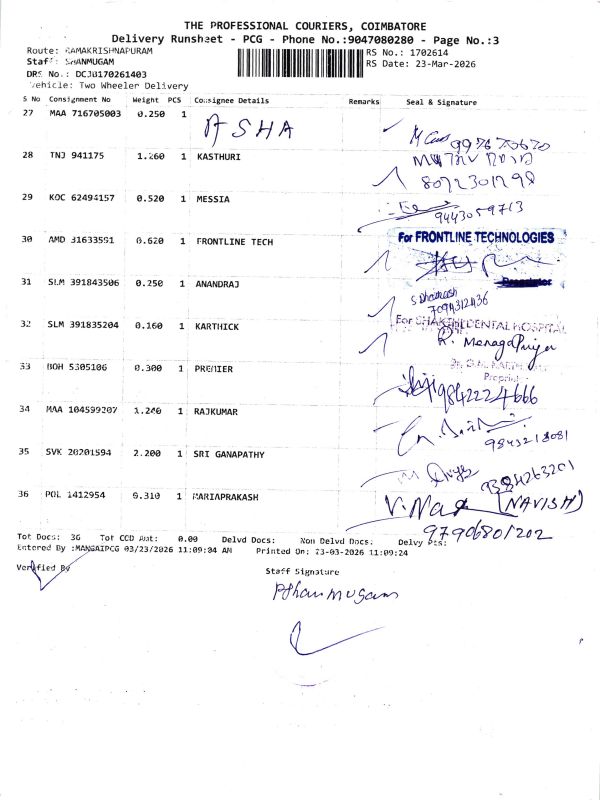 THE PROFESSIONAL COURIERS, COIMBATORE
Delivery Runsheet - PCG - Phone No.:9047080280 - Page No.:3
Route: RAMAKRISHNAPURAM
RS No.: 1702614
Staff: SHANMUGAM
RS Date: 23-Mar-2026
DRS No.: DCJB170261403
Vehicle: Two Wheeler Delivery
S No Consignment No Weight PCS Consignee Details Remarks Seal & Signature
27 MAA 716705003 0.250 1 ASHA
28 TNJ 941175 1.260 1 KASTHURI
8072301798
29 KOC 62494157 0.520 1 MESSIA
9443059713
30 AMD 31633591 0.620 1 FRONTLINE TECH
For FRONTLINE TECHNOLOGIES
31 SLM 391843506 0.250 1 ANANDRAJ
7094312436
32 SLM 391835204 0.160 1 KARTHICK
For SHAKTHI DENTAL HOSPITAL
R. MenagaPriya
33 BOH 5305106 0.300 1 PREMIER
9842224666
34 MAA 104599207 1.240 1 RAJKUMAR
9843218081
35 SVK 20201594 2.200 1 SRI GANAPATHY
9384263201
36 POL 1412954 0.310 1 MARIAPRAKASH
(NAVISH)
97906801202
Tot Docs: 36 Tot COD Amt: 0.00 Delvd Docs: Non Delvd Docs: Delvy Pcs:
Entered By :MANGAIPCG 03/23/2026 11:09:04 AM Printed On: 23-03-2026 11:09:24
Verified By
Staff Signature
PShanmugam